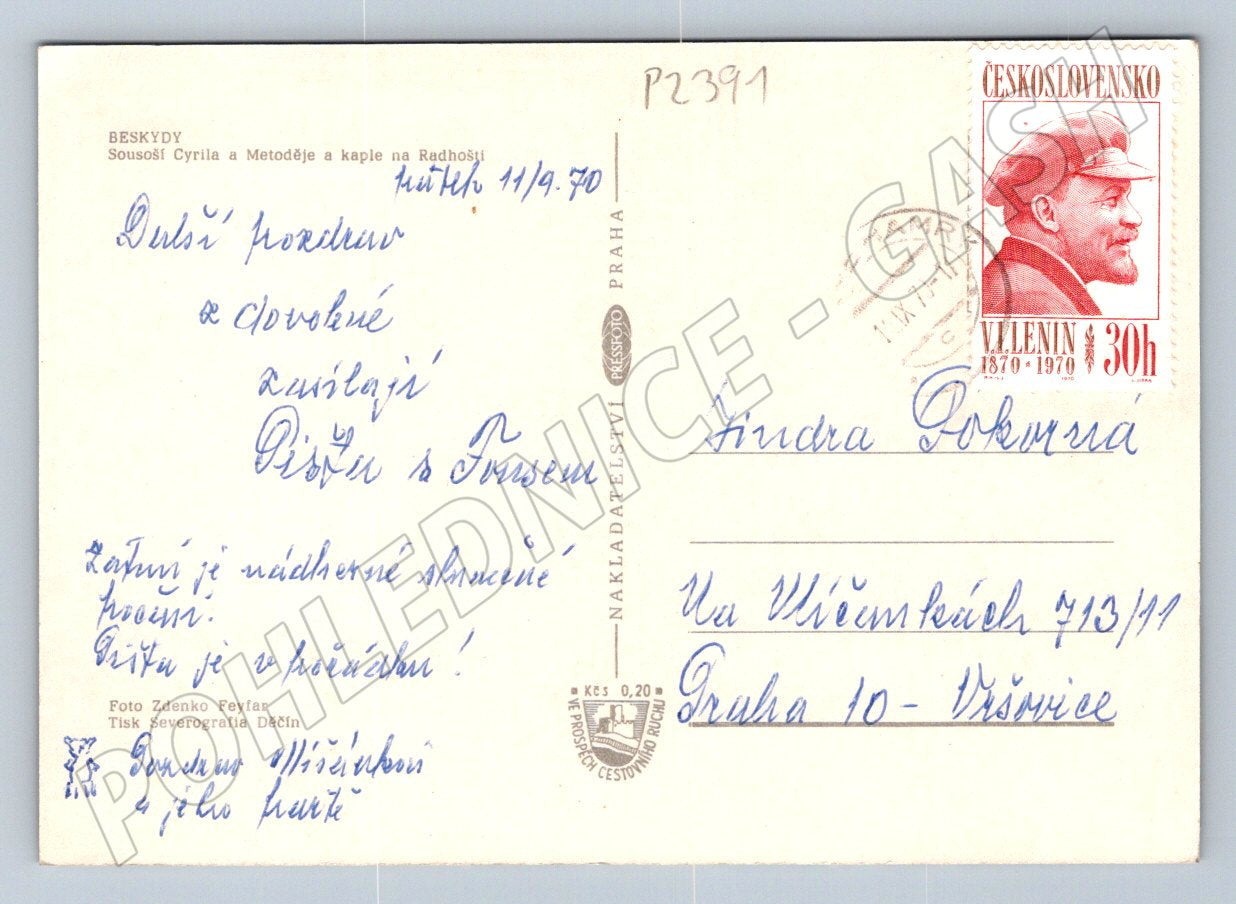 P2391
ČESKOSLOVENSKO
V.I.LENIN 30h
1870 * 1970
BESKYDY
Sousoší Cyrila a Metoděje a kaple na Radhošti
pátek 11/9. 70
Další pozdrav
z dovolené
zasílají
Píšťa s Fousem
Zatím je nádherné slunečné
počasí.
Píšťa je v pořádku!
Foto Zdenko Feyfar
Tisk Severografia Děčín
Pozdrav
a jeho partě
NAKLADATELSTVÍ PRESSFOTO PRAHA
Kčs 0,20
VE PROSPĚCH CESTOVNÍHO RUCHU
Jindra Pokorná
Na Vlčinkách 713/11
Praha 10 - Vršovice
POHLEDNICE - GASH